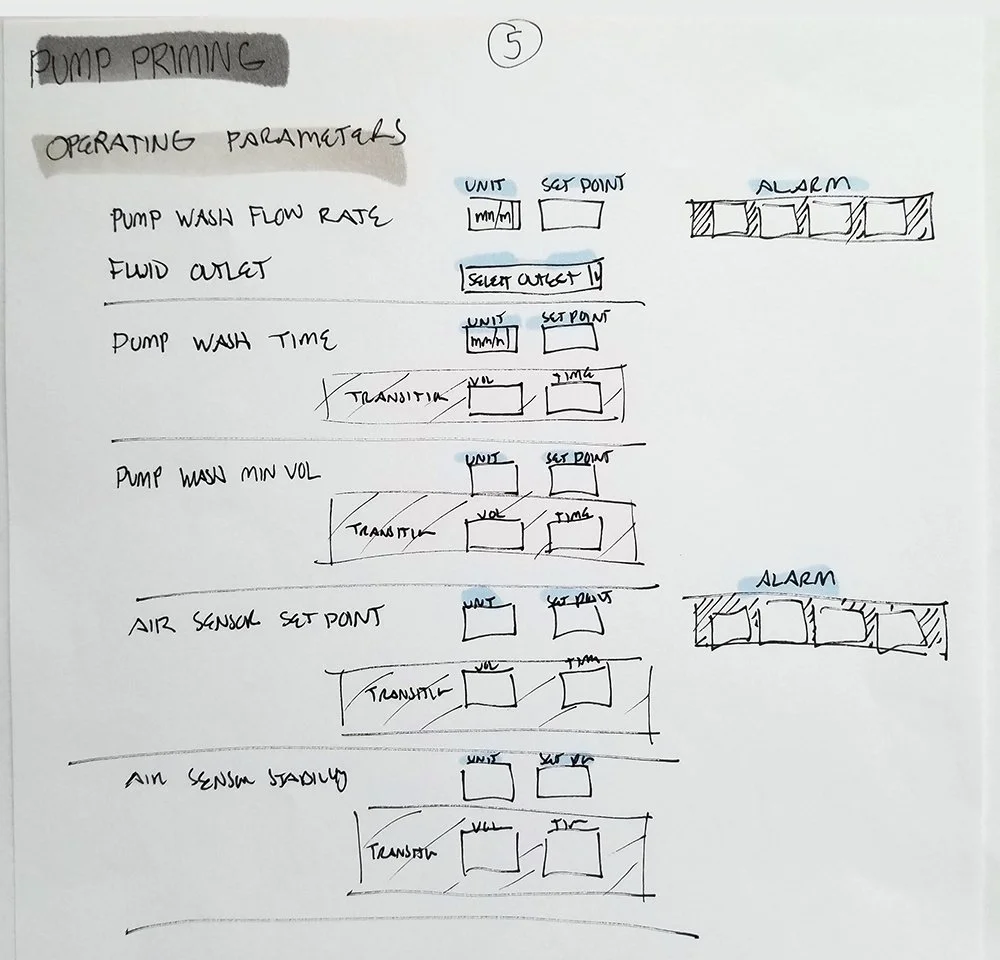 5
PUMP PRIMING
OPERATING PARAMETERS
UNIT SET POINT ALARM
PUMP WASH FLOW RATE
FLUID OUTLET SELECT OUTLET
UNIT SET POINT
PUMP WASH TIME
VOL TIME
TRANSITION
UNIT SET POINT
PUMP WASH MIN VOL
VOL TIME
TRANSITION
ALARM
UNIT SET POINT
AIR SENSOR SET POINT
VOL TIME
TRANSITION
UNIT
AIR SENSOR STABILITY
VOL